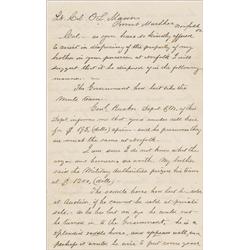 Lt. Col. O. L. Mann
Provost Marshal Norfolk
Va.
Col. — as you have so kindly offered
to assist in disposing of the property of my
brother in your possession at Norfolk I will
suggest that it be disposed of in the following
manner. —
The Government has but like the
Mule team.
Capt. Depot Q.M. of this
Dept informs me that good mules sell here
for $175 (dolls) apiece — and he presumes they
are worth the same at Norfolk.
I am sure I do not know what the
wagon and harness is worth. My brother
said the Military Authorities prizes his team
at $1200, (dolls).
The saddle horse have him sold
at Auction if he cannot be sold at private
sale. As he has lost an eye he would not
be to the Government. he is a
splendid saddle horse, and appears well, and
perhaps it would be wise to put some good